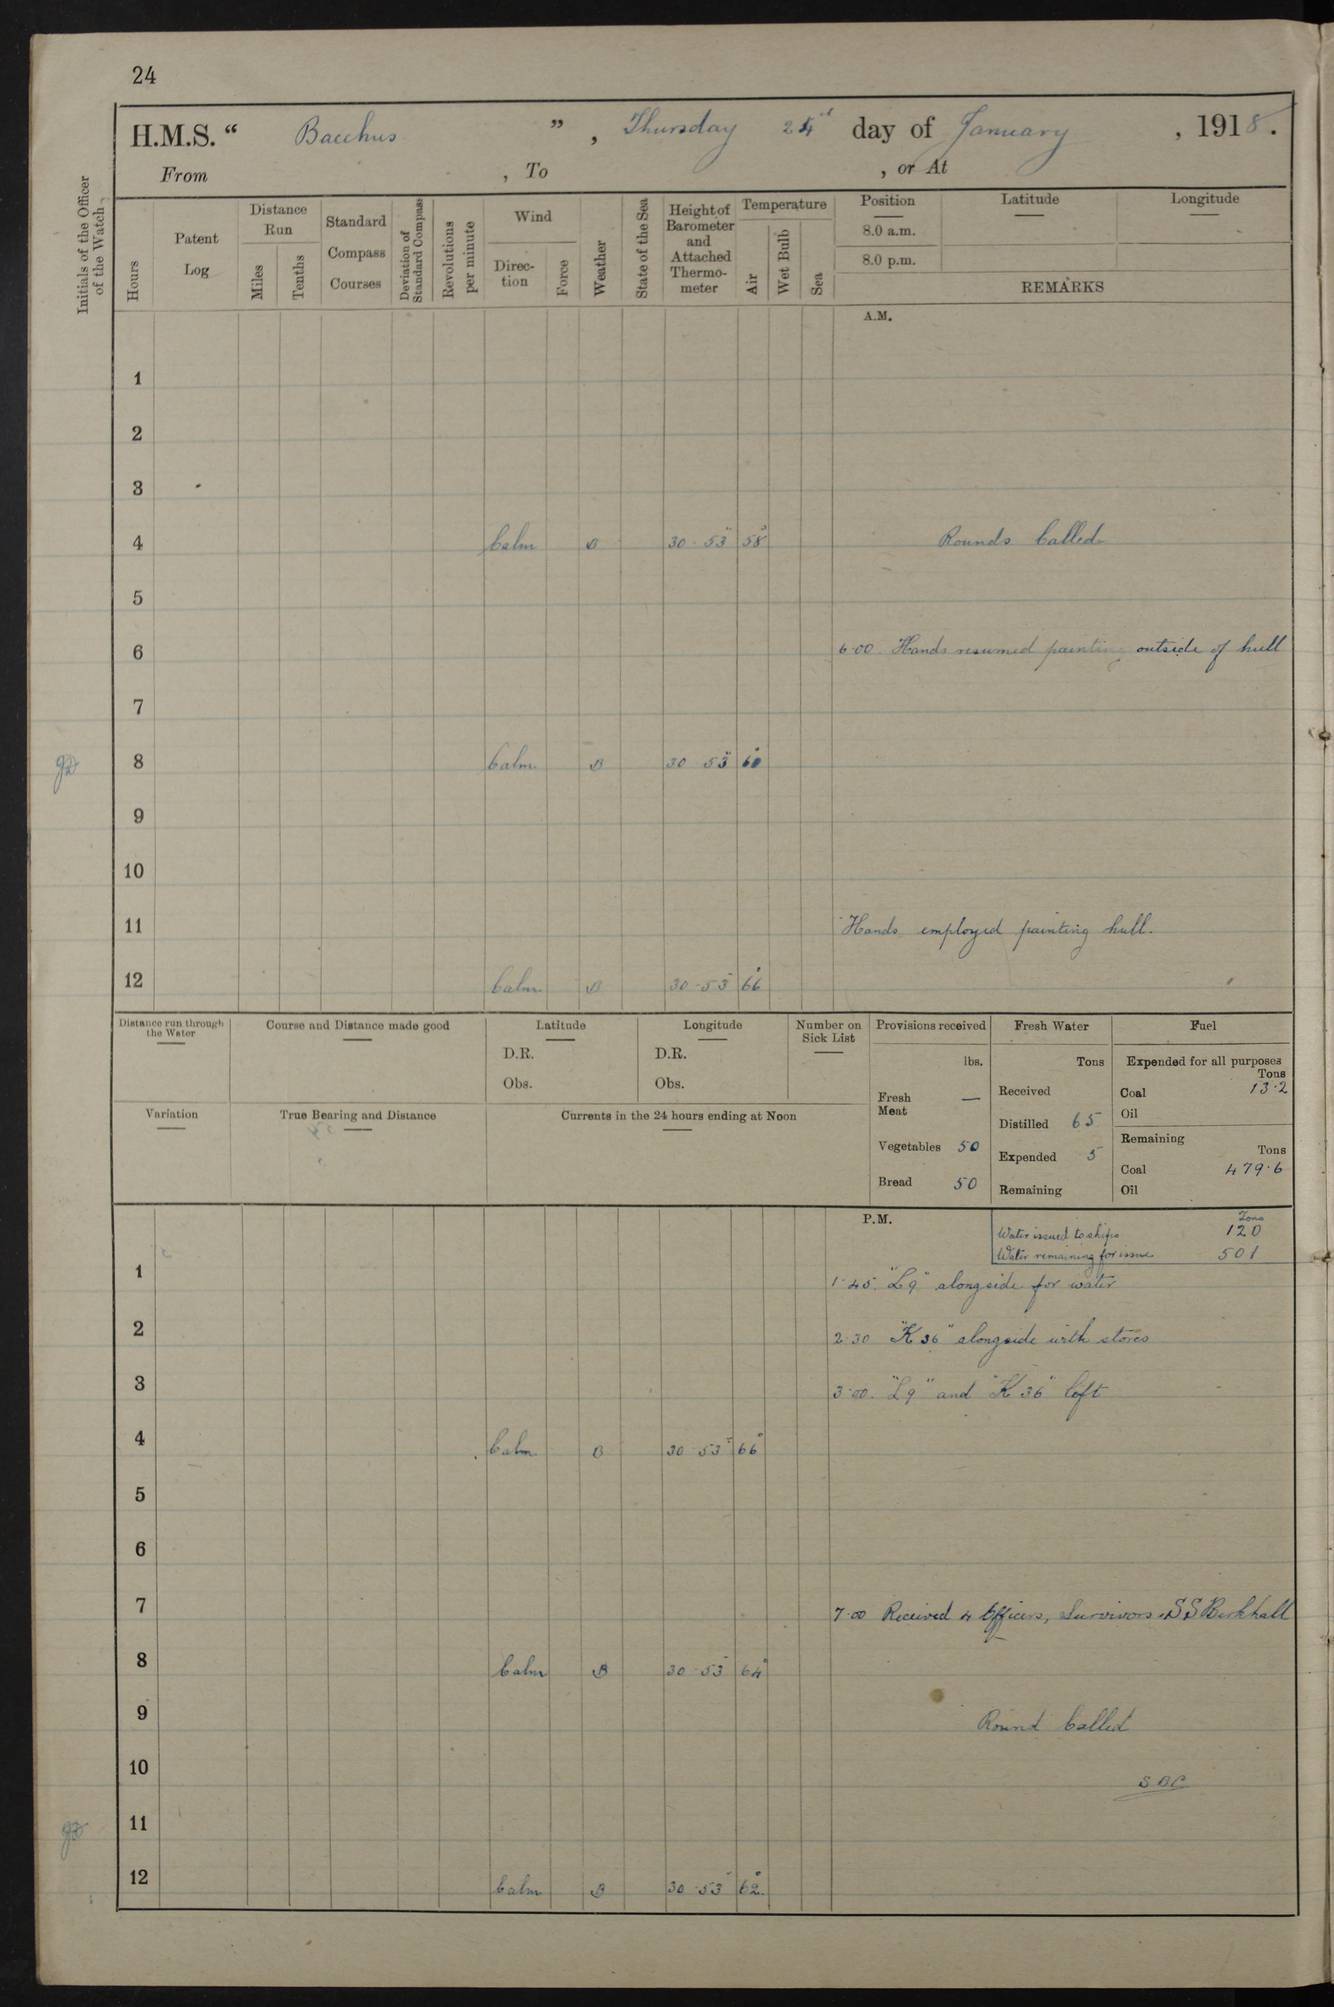 24
H.M.S. “ Bacchus ” , Thursday 24th day of January , 1918.
From , To , or At
Initials of the Officer of the Watch
Hours
Patent Log
Distance Run
Miles
Tenths
Standard Compass Courses
Deviation of Standard Compass
Revolutions per minute
Wind
Direc-tion
Force
Weather
State of the Sea
Height of Barometer and Attached Thermo-meter
Temperature
Air
Wet Bulb
Sea
Position
8.0 a.m.
8.0 p.m.
Latitude
Longitude
REMARKS
A.M.
1
2
3
4 Calm B 30·53" 58° Rounds Called
5
6 6·00 Hands resumed painting outside of hull
7
8 Calm B 30 53" 60°
9
10
11 Hands employed painting hull.
12 Calm B 30·53 66°
Distance run through the Water
Course and Distance made good
Latitude
D.R.
Obs.
Longitude
D.R.
Obs.
Number on Sick List
Variation
True Bearing and Distance
Currents in the 24 hours ending at Noon
Provisions received
lbs.
Fresh Meat —
Vegetables 50
Bread 50
Fresh Water
Tons
Received
Distilled 65
Expended 5
Remaining
Fuel
Expended for all purposes
Tons
Coal 13·2
Oil
Remaining
Tons
Coal 479·6
Oil
P.M.
Tons
Water issued to ships 120
Water remaining for issue 501
1 1·45. "L9" alongside for water
2 2·30 "K36" alongside with stores
3 3·00. "L9" and "K36" left
4 Calm B 30·53" 66°
5
6
7 7·00 Received 4 Officers, Survivors SS Birkhall
8 Calm B 30·53 64°
9 Round Called
10 SBC
11
12 Calm B 30·53 62°